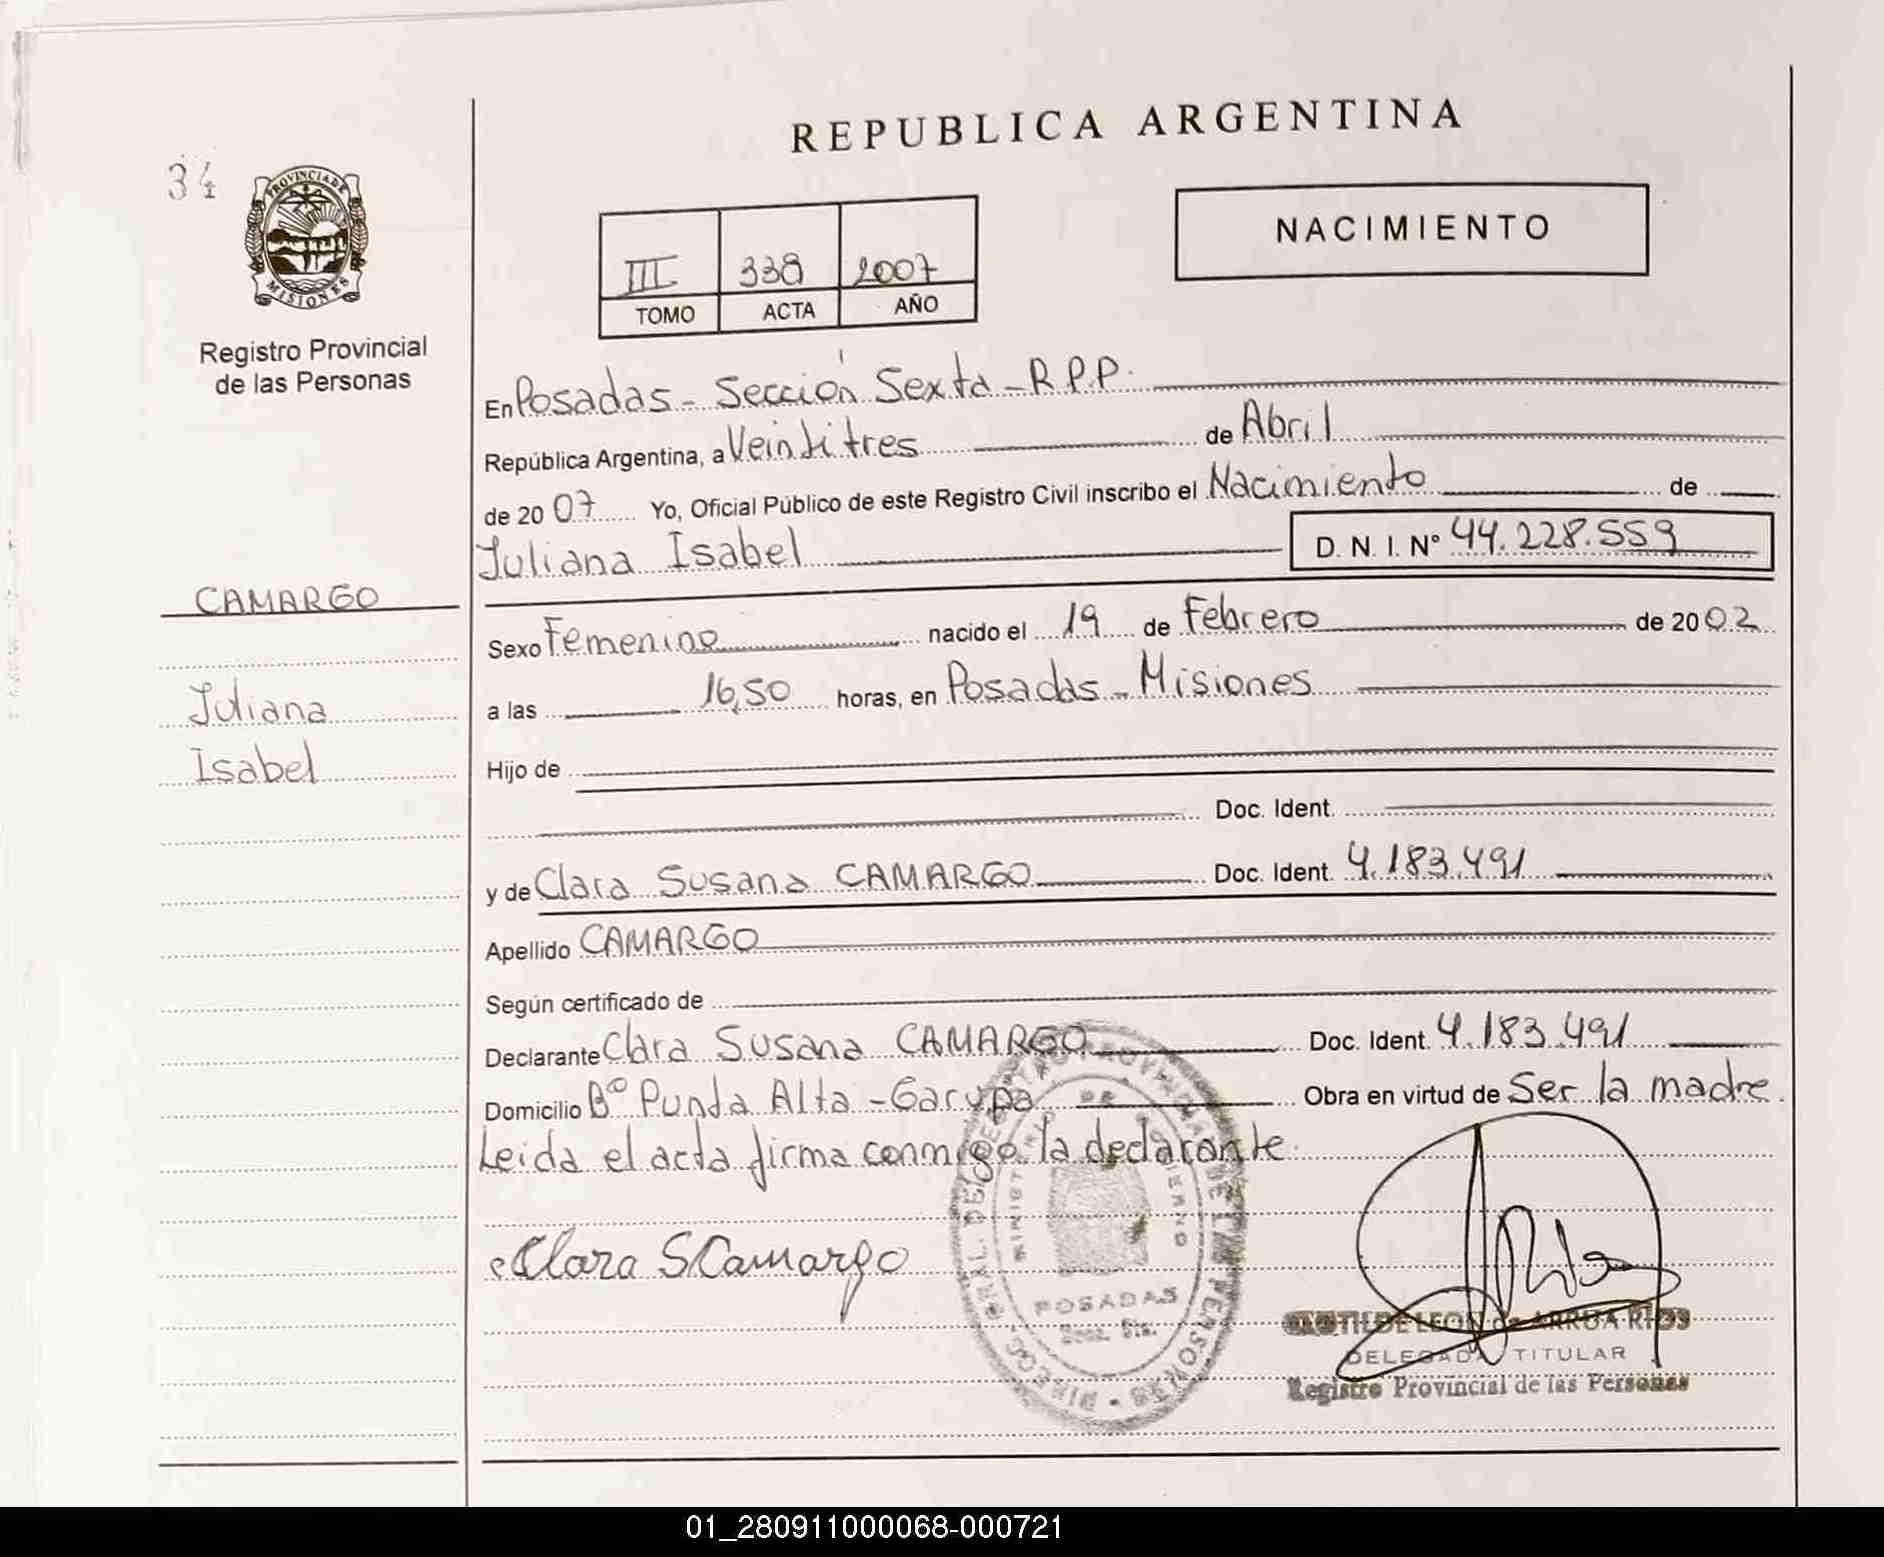 REPUBLICA ARGENTINA
34
PROVINCIA DE MISIONES
NACIMIENTO
III 338 2007
TOMO ACTA AÑO
Registro Provincial
de las Personas
En Posadas - Sección Sexta - R.P.P.
República Argentina, a Veintitres de Abril
de 2007 Yo, Oficial Público de este Registro Civil inscribo el Nacimiento de
Juliana Isabel D. N. I. N° 44.228.559
CAMARGO
Sexo Femenino nacido el 19 de Febrero de 2002
Juliana
a las 16,50 horas, en Posadas - Misiones
Isabel
Hijo de
Doc. Ident.
y de Clara Susana CAMARGO Doc. Ident. 4.183.491
Apellido CAMARGO
Según certificado de
Declarante Clara Susana CAMARGO Doc. Ident. 4.183.491
Domicilio B° Punta Alta - Garupa Obra en virtud de Ser la madre
Leida el acta firma conmigo la declarante.
Clara S Camargo
POSADAS
DE LEON de ARRUA RIOS
DELEGADA TITULAR
Registro Provincial de las Personas
01_280911000068-000721